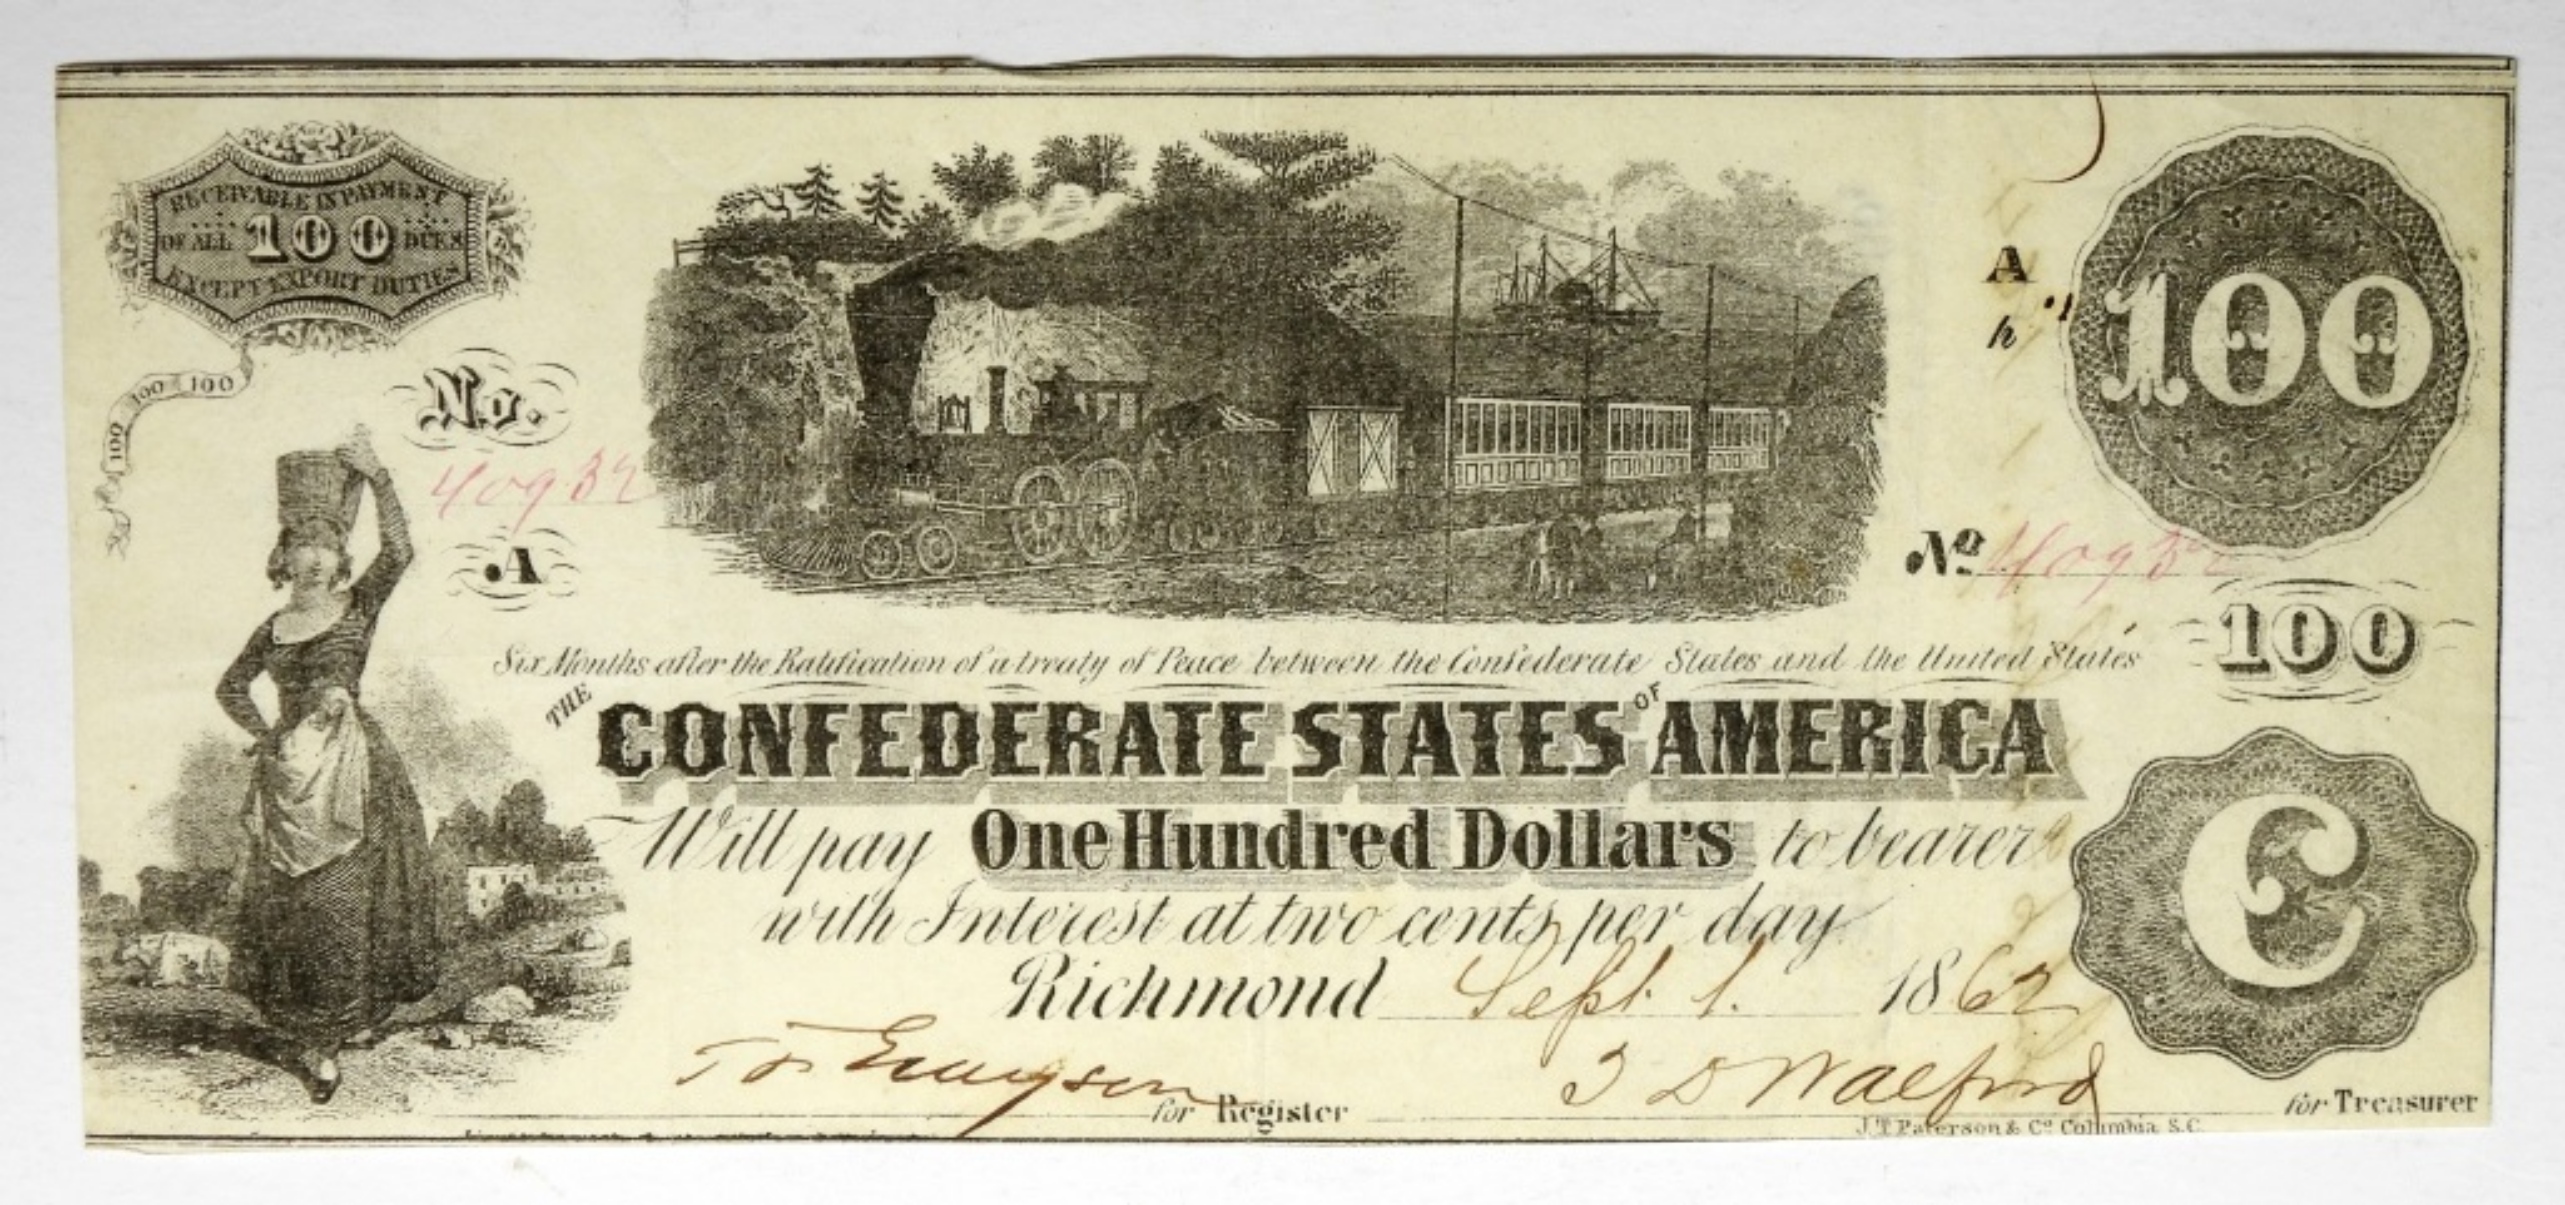 RECEIVABLE IN PAYMENT
OF ALL 100 DUES
EXCEPT EXPORT DUTIES
100 100 100
No.
40932
A
A
h
100
No 40932
100
Six Months after the Ratification of a treaty of Peace between the Confederate States and the United States
THE CONFEDERATE STATES OF AMERICA
Will pay One Hundred Dollars to bearer
with Interest at two cents per day
C
Richmond Sept. 1. 1862
for Register
for Treasurer
J.T. Paterson & Co Columbia, S.C.